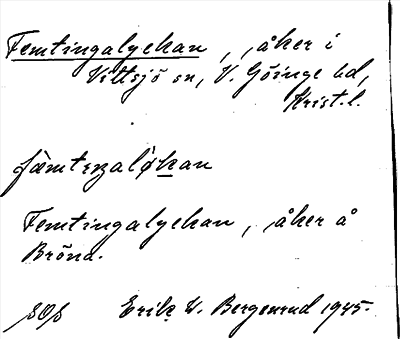 Femtingalyckan, åker i
Vittsjö sn, V. Göinge hd,
Krist. l.
Femtingalyckan, åker å
Bröna.
Erik W. Bergenrud 1945.